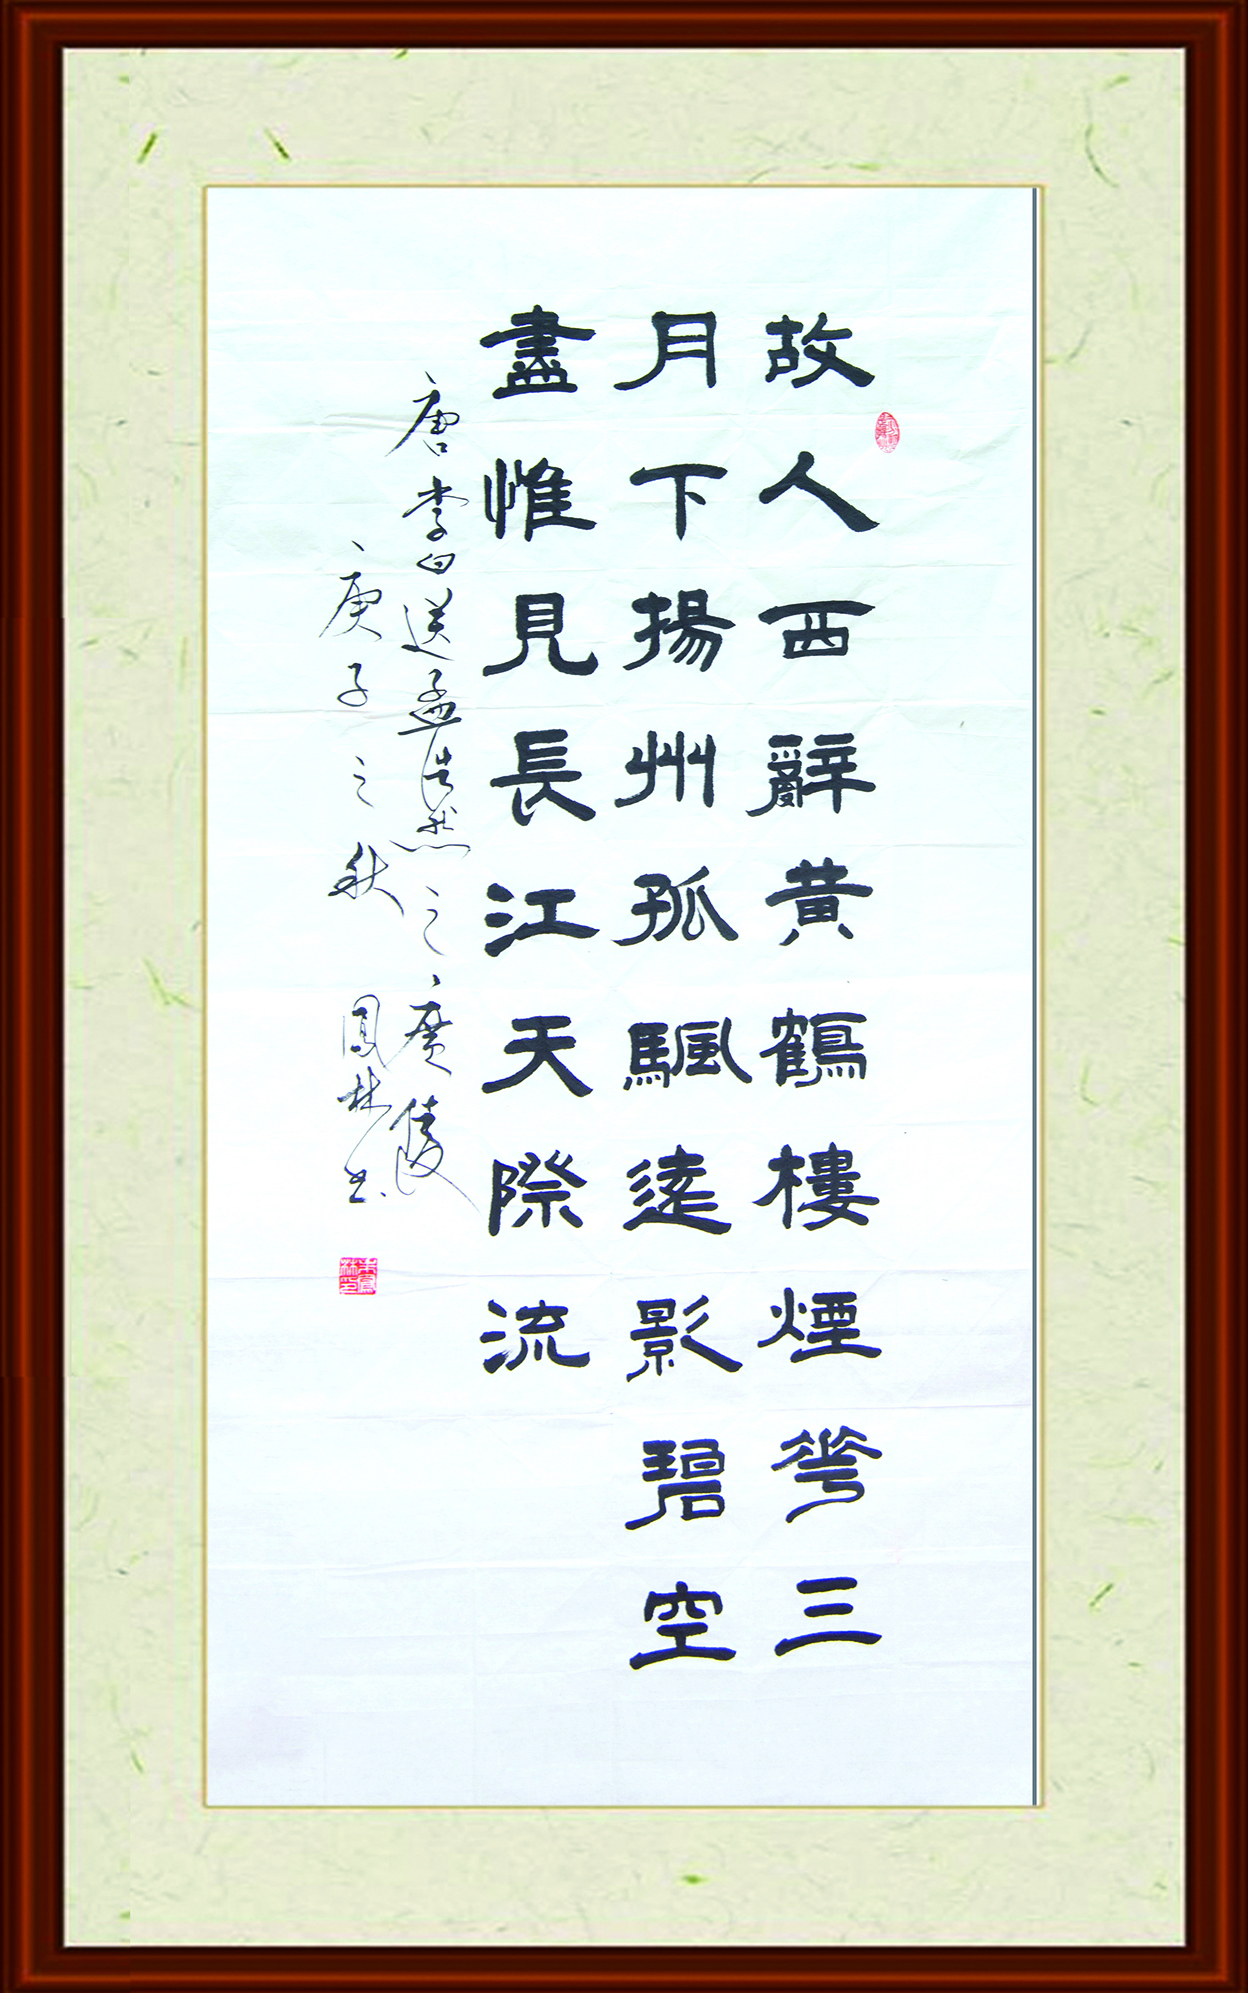 故人西辭黃鶴樓煙華三
月下揚州孤颿遠影碧空
盡惟見長江天際流
唐李白送孟浩然之廣陵
庚子之秋 鳳林书
朱鳳林印